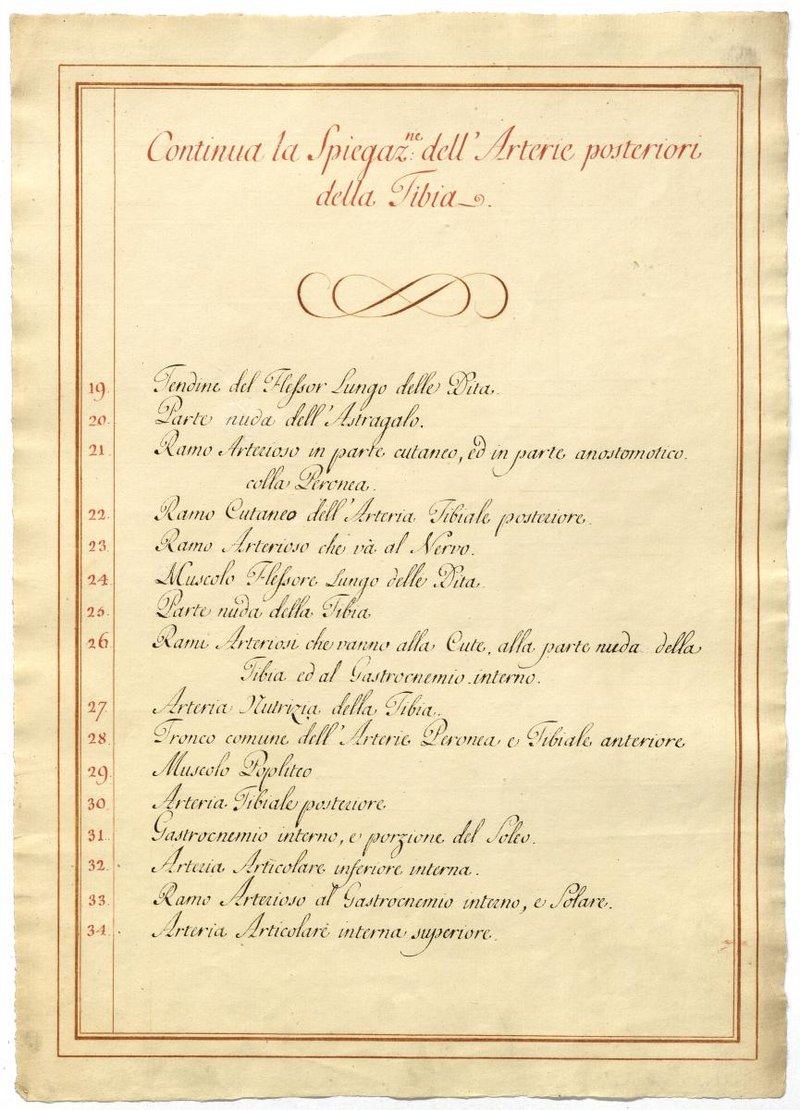 Continua la Spiegaz.ne dell'Arterie posteriori
della Tibia.
19. Tendine del Flessor Lungo delle Dita.
20. Parte nuda dell'Astragalo.
21 Ramo Arterioso in parte cutaneo, ed in parte anostomotico.
colla Peronea.
22. Ramo Cutaneo dell'Arteria Tibiale posteriore.
23. Ramo Arterioso che và al Nervo.
24 Muscolo Flessore Lungo delle Dita.
25. Parte nuda della Tibia
26 Rami Arteriosi che vanno alla Cute, alla parte nuda della
Tibia ed al Gastrocnemio interno.
27. Arteria Nutrizia della Tibia.
28. Tronco comune dell'Arterie Peronea e Tibiale anteriore
29. Muscolo Popliteo
30. Arteria Tibiale posteriore
31. Gastrocnemio interno, e porzione del Soleo.
32. Arteria Articolare inferiore interna.
33. Ramo Arterioso al Gastrocnemio interno, e Solare.
34. Arteria Articolare interna superiore.